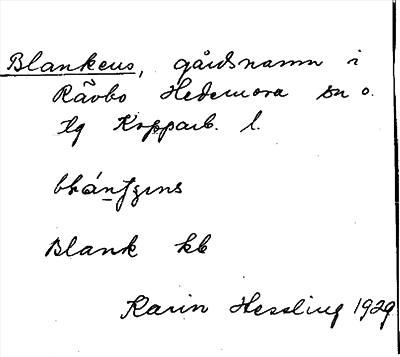 Blankens, gårdsnamn i
Råvbo Hedemora sn o.
tg Kopparb. l.
Blank kb
Karin Hessling 1929